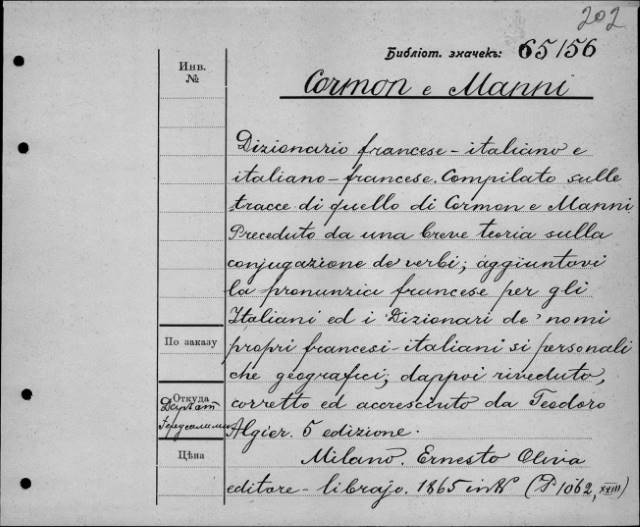 202
Библіот. значекъ: 65/56
Инв.
№
Cormon e Manni
Dizionario francese-italiano e
italiano-francese. Compilato sulle
tracce di quello di Cormon e Manni
Preceduto da una breve teoria sulla
conjugazione de verbi; aggiuntovi
la pronunzia francese per gli
Italiani ed i Dizionari de' nomi
По заказу
propri francesi-italiani si personali
che geografici; dappoi riveduto,
Откуда
corretto ed accresciuto da Teodoro
Algier. 5 edizione.
Цѣна
Milano. Ernesto Oliva
editore-librajo. 1865 in (P 1062, XXIII)